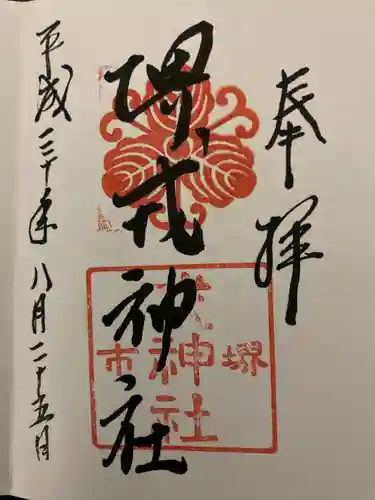 奉拝
堺戎神社
堺
戎神社
市
平成三十年八月二十五日